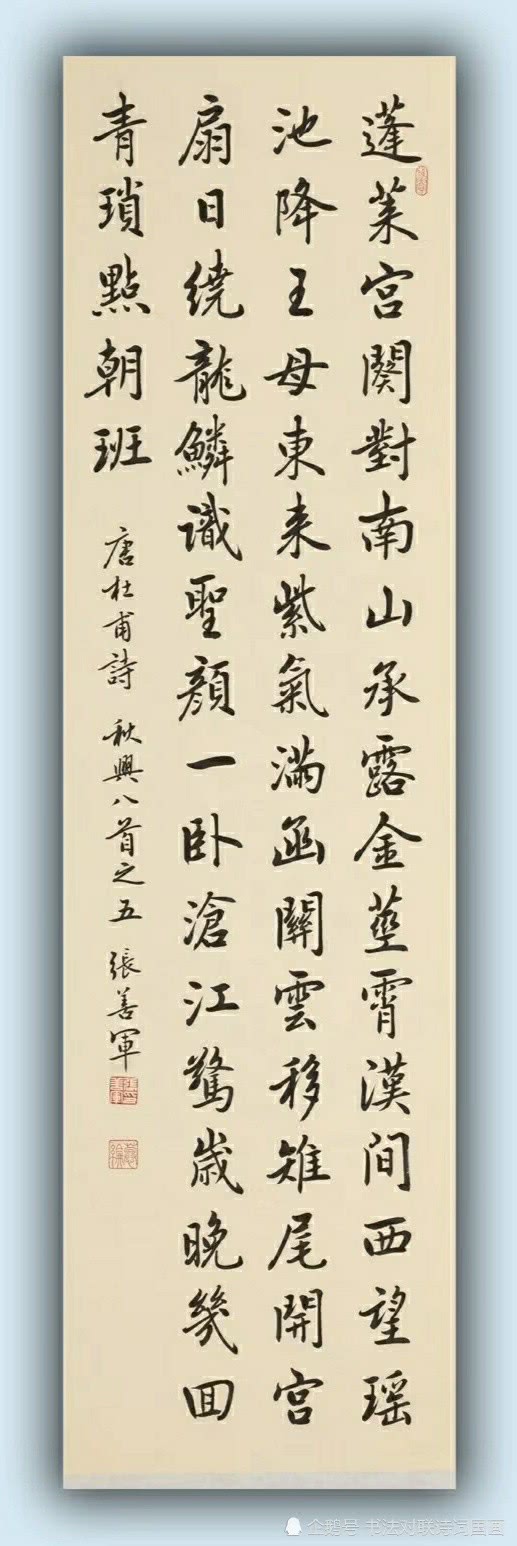 蓬莱宫闕對南山承露金莖霄漢间西望瑶
池降王母東来紫氣滿函關雲移雉尾開宫
扇日繞龍鱗識聖顔一卧滄江驚歲晚幾回
青瑣點朝班
唐杜甫詩 秋興八首之五 張善軍
企鹅号 书法对联诗词国画